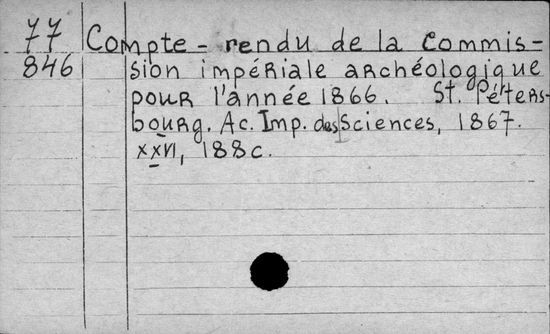 77 Compte-rendu de la Commis-
846 sion impériale archéologique
pour l'année 1866. St. Péters-
bourg. Ac. Imp. des Sciences, 1867.
XXVI, 188c.